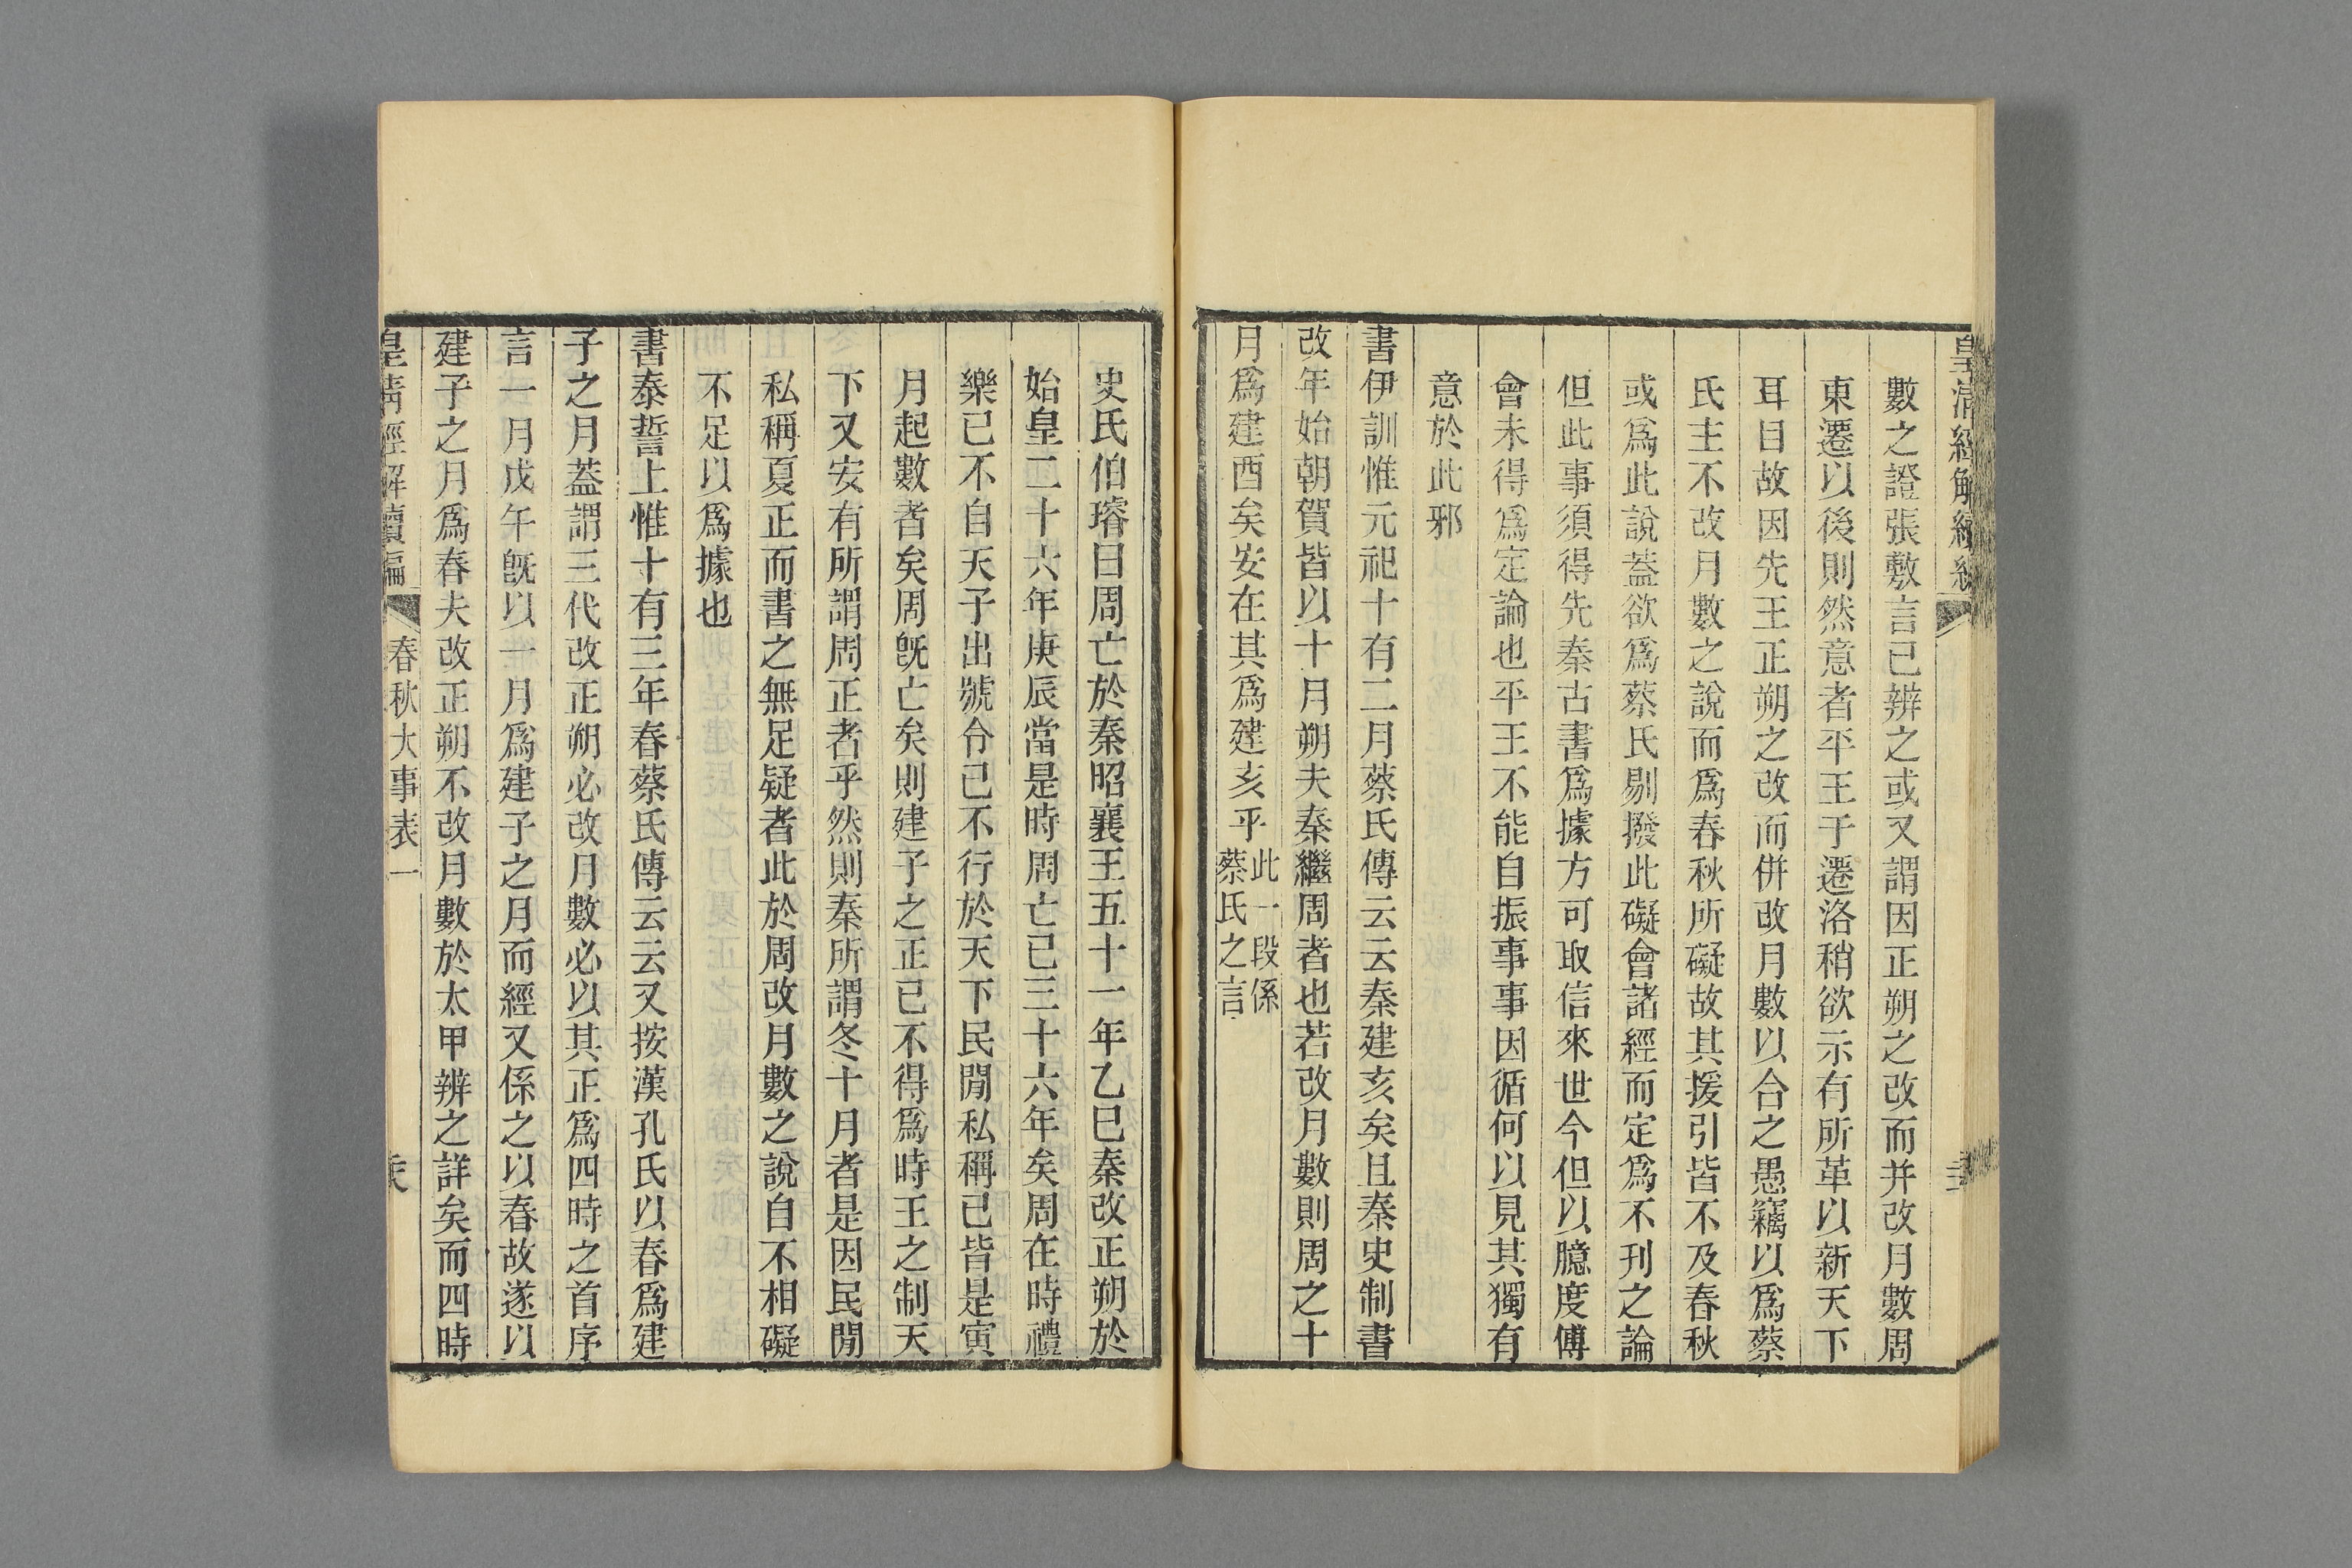 數之證張敷言已辨之或又謂因正朔之改而并改月數周
東遷以後則然意者平王于遷洛稍欲示有所革以新天下
耳目故因先王正朔之改而併改月數以合之愚竊以爲蔡
氏主不改月數之說而爲春秋所礙故其援引皆不及春秋
或爲此說蓋欲爲蔡氏剔撥此礙會諸經而定爲不刊之論
但此事須得先秦古書爲據方可取信來世今但以臆度傅
會未得爲定論也平王不能自振事事因循何以見其獨有
意於此邪
書伊訓惟元祀十有二月蔡氏傳云云秦建亥矣且秦史制書
改年始朝賀皆以十月朔夫秦繼周者也若改月數則周之十
月爲建酉矣安在其爲建亥乎此一段係
蔡氏之言
史氏伯璿曰周亡於秦昭襄王五十一年乙巳秦改正朔於
始皇二十六年庚辰當是時周亡已三十六年矣周在時禮
樂已不自天子出號令已不行於天下民閒私稱已皆是寅
月起數者矣周既亡矣則建子之正已不得爲時王之制天
下又安有所謂周正者乎然則秦所謂冬十月者是因民閒
私稱夏正而書之無足疑者此於周改月數之說自不相礙
不足以爲據也
書泰誓上惟十有三年春蔡氏傳云云又按漢孔氏以春爲建
子之月蓋謂三代改正朔必改月數必以其正爲四時之首序
言一月戊午既以一月爲建子之月而經又係之以春故遂以
建子之月爲春夫改正朔不改月數於太甲辨之詳矣而四時
皇清經解續編 春秋大事表一